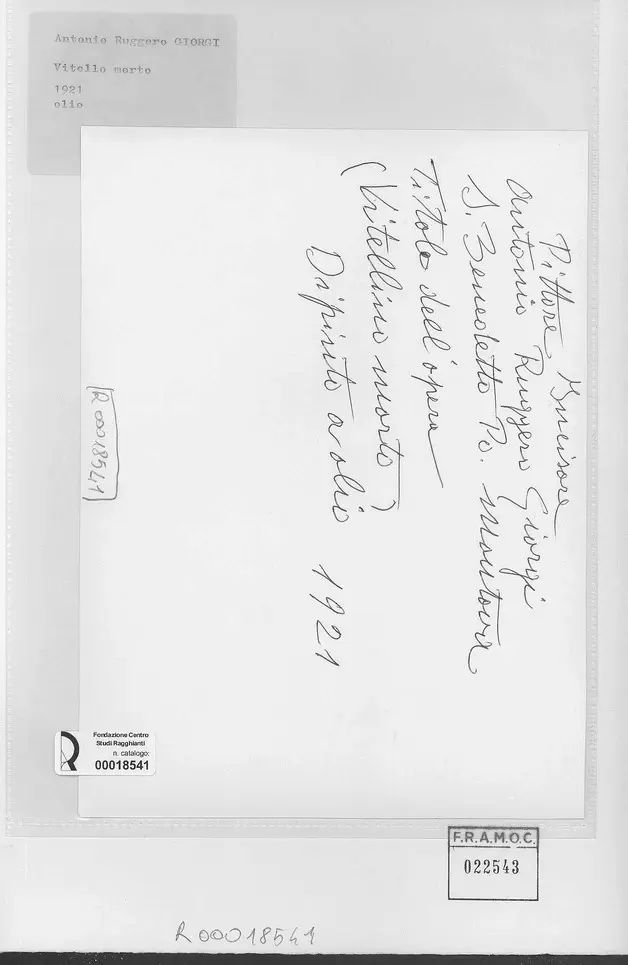 Antonio Ruggero GIORGI
Vitello morto
1921
olio
Pittore Incisore
Antonio Ruggero Giorgi
S. Benedetto Po. Mantova
Titolo dell'opera
(Vitellino morto)
Dipinto a olio 1921
R 00018541
Fondazione Centro
Studi Ragghianti
n. catalogo:
00018541
F.R.A.M.O.C.
022543
R00018541